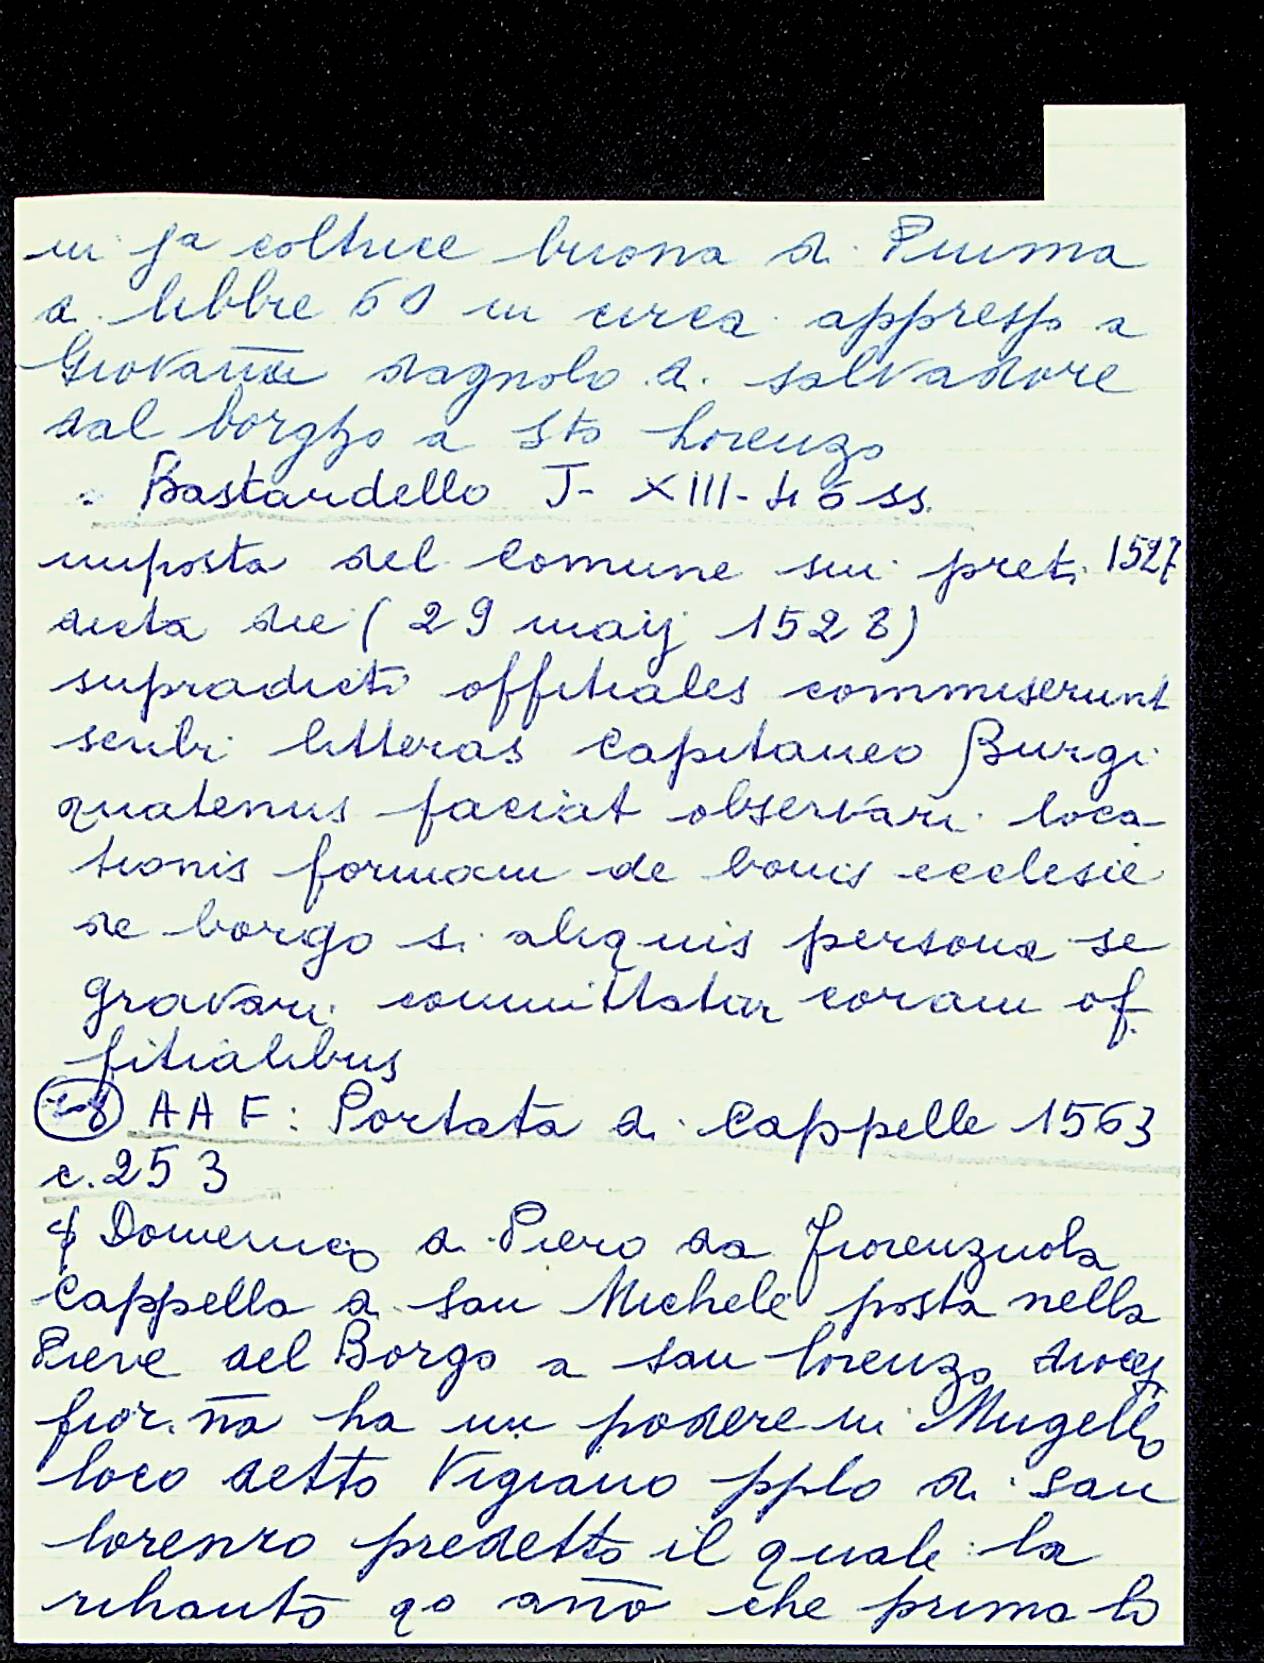 in ja coltrice buona di Piuma
a libbre 60 in circa appresso a
Giovañi dagnolo di salvadore
dal borgho a Sto Lorenzo
Bastardello J- XIII-46 ss.
imposta del comune sui preti 1527
dicta die (29 maij 1528)
supradicti offitiales commiserunt
scribi litteras capitaneo Burgi
quatenus faciat observari loca
tionis formam de bonis ecclesie
de borgo si aliquis persona se
gravari committatur coram of
fitialibus
AAF: Portata di Cappelle 1563
c. 253
Domenico di Piero da Fiorenzuola
Cappella di San Michele posta nella
Pieve del Borgo a San Lorenzo
fior. na ha un podere in Mugello
loco detto Vigiano pplo di San
lorenzo predetto il quale la
rihauto qo año che prima lo